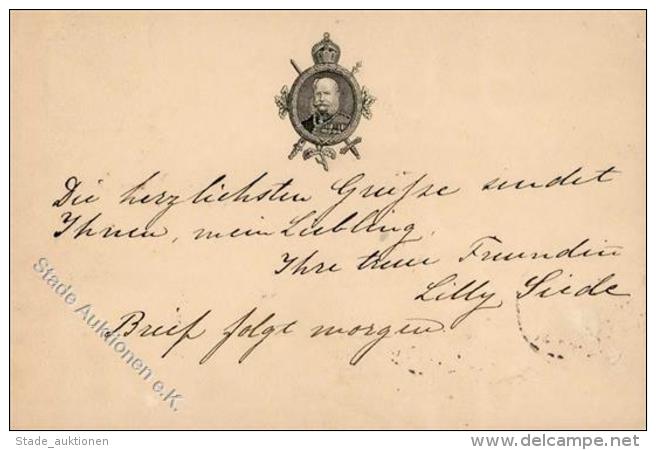 Die herzlichsten Grüße sendet
Ihnen, mein Liebling,
Ihre treue Freundin
Lilly Siede
Brief folgt morgen
Stade Auktionen e.K.
Stade_auktionen
www.delcampe.net